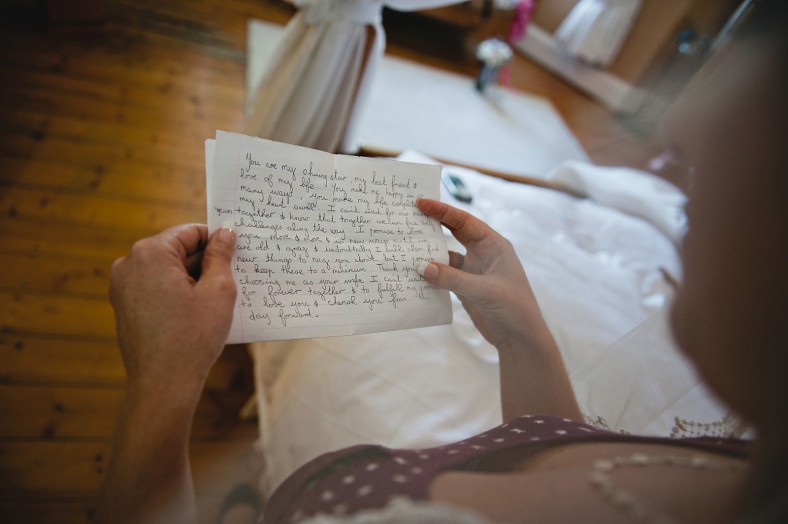 You are my shining star, my best friend &
love of my life. You make me happy in so
many ways, you make my life complete
my heart swell. I can't wait for we
years together & know that together we can face any
challenges along the way. I promise to love
you more & more & in new ways until we
are old & gray & undoubtedly I will also find
new things to nag you about but I promise
to keep these to a minimum. Thank you
choosing me as your wife I can't wait
for forever together & to fulfill my
to love you & cherish you from
day forward.